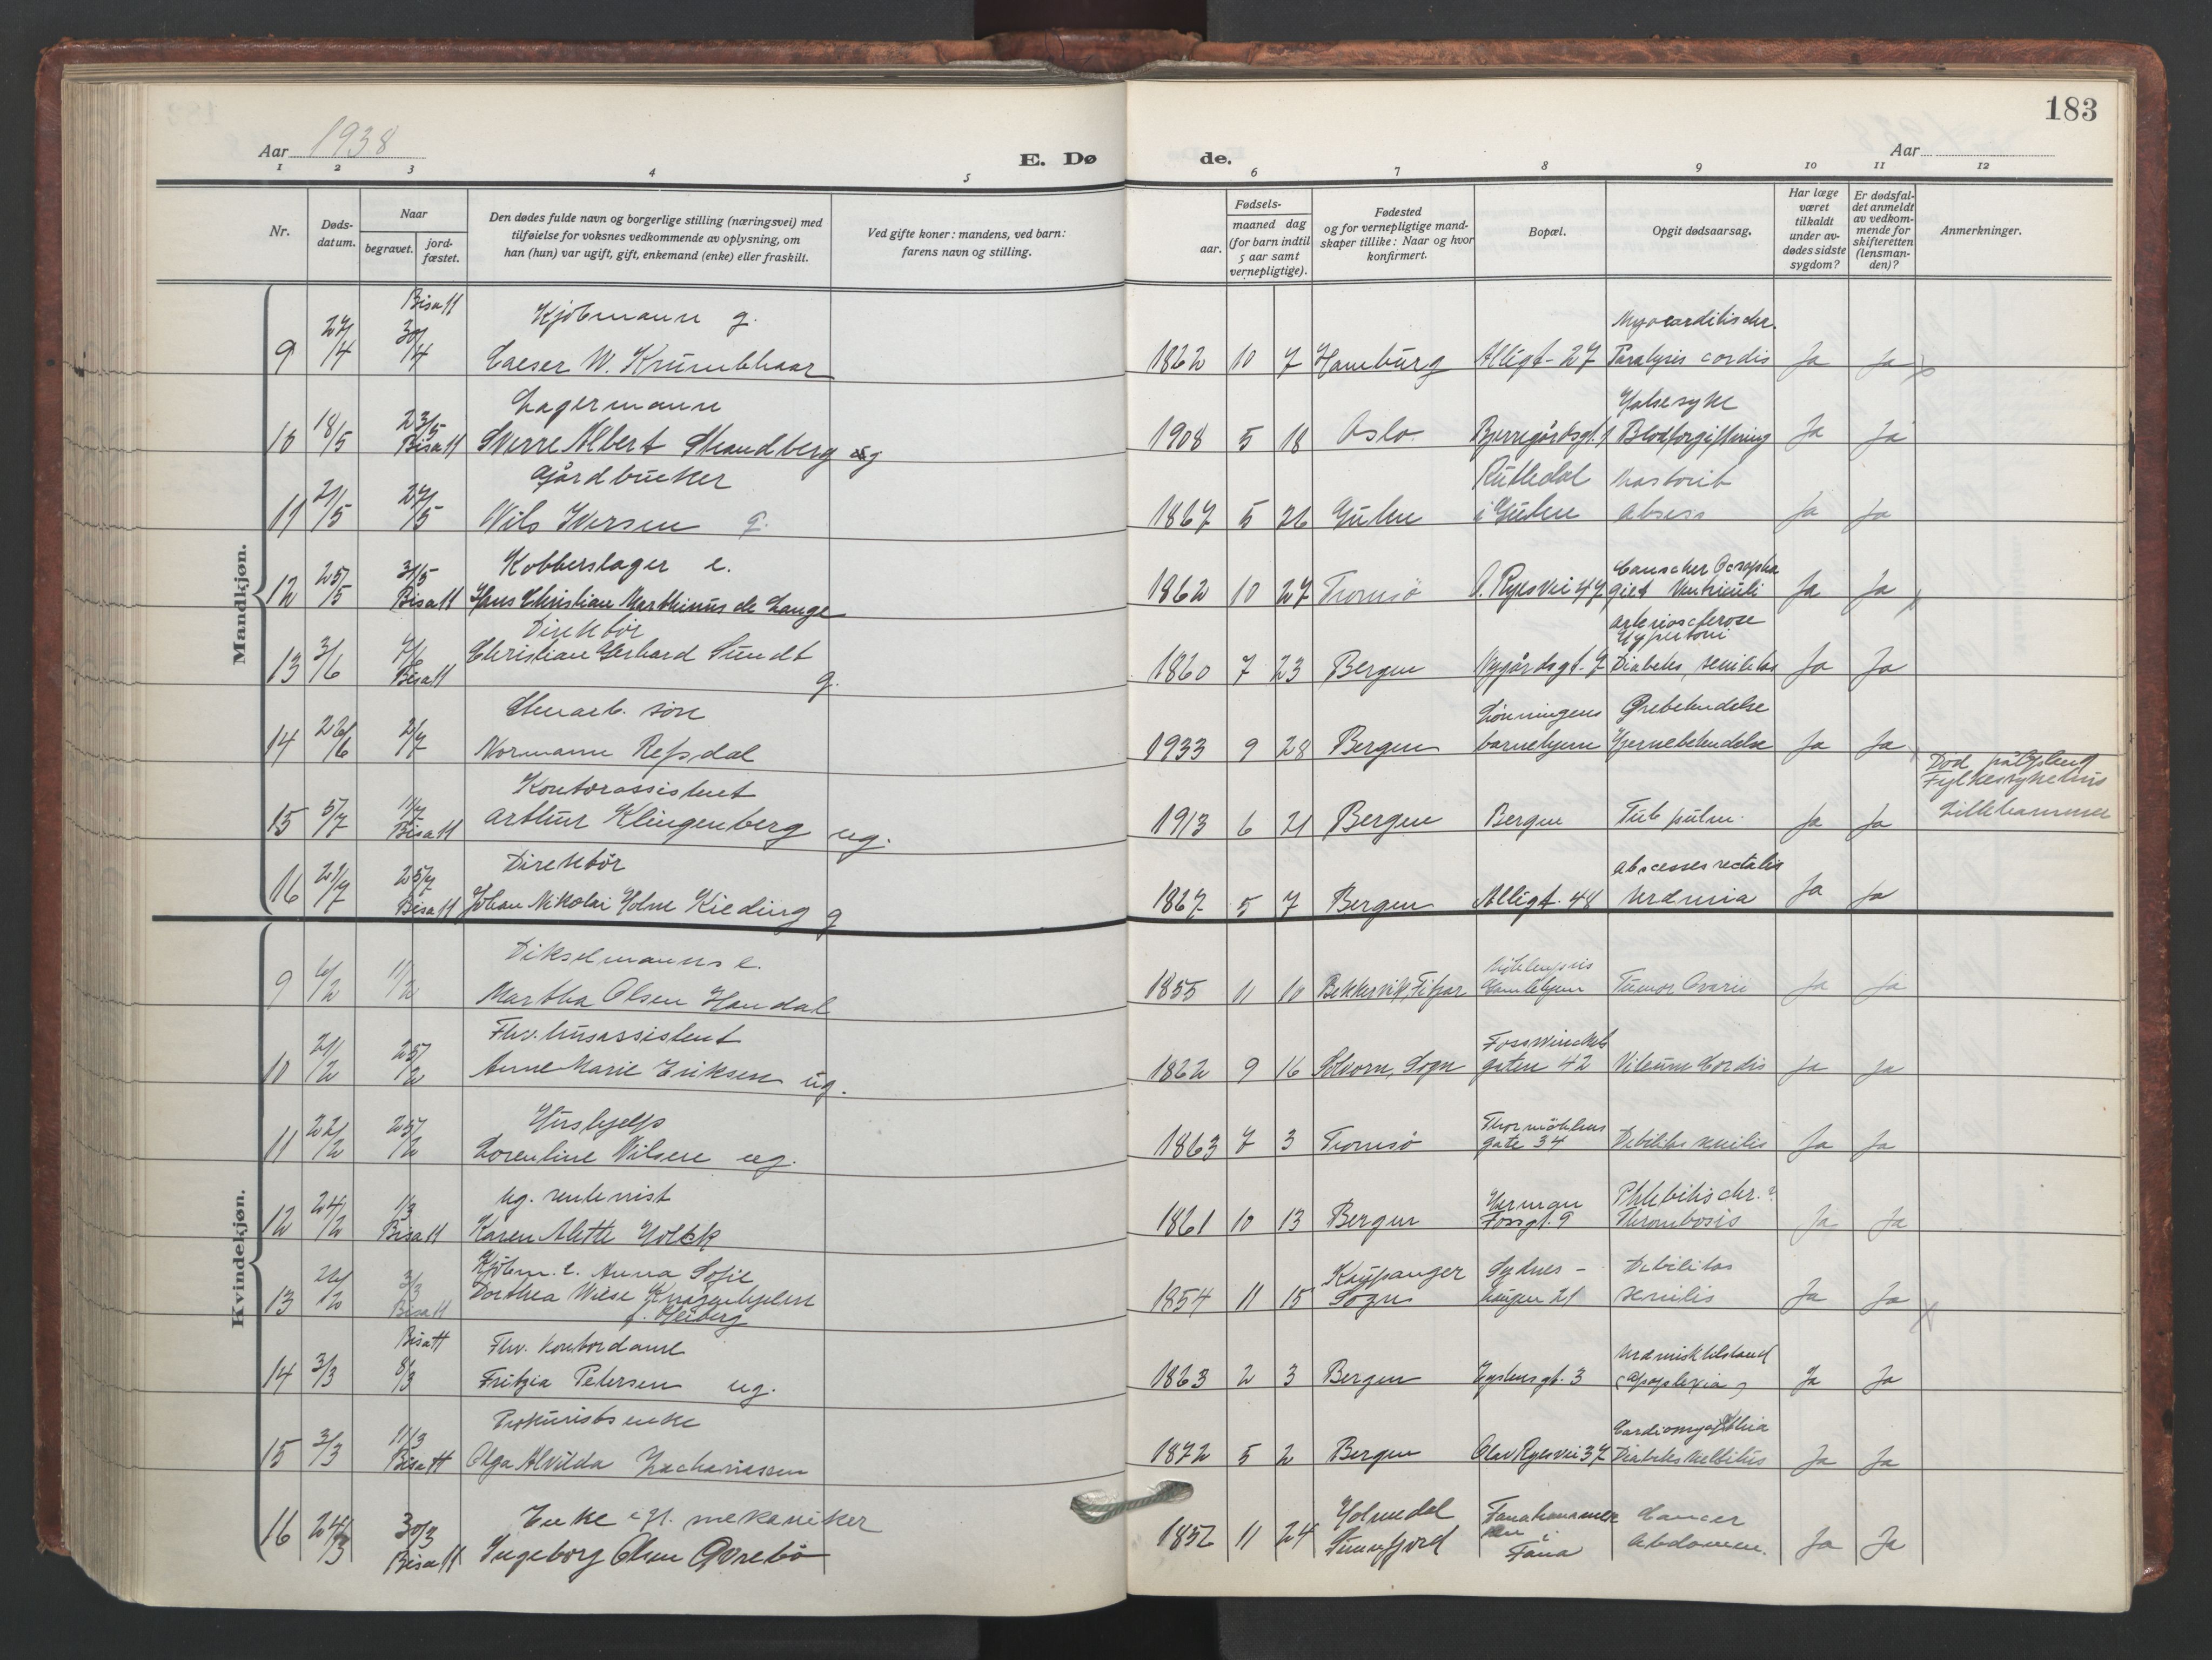 183
Aar 1938
E. Dø
de.
Aar
1 2 3 4 5 6 7 8 9 10 11 12
Nr.
Døds-
datum.
Naar
begravet.
jord-
fæstet.
Den dødes fulde navn og borgerlige stilling (næringsvei) med
tilføielse for voksnes vedkommende av oplysning, om
han (hun) var ugift, gift, enkemand (enke) eller fraskilt.
Ved gifte koner: mandens, ved barn:
farens navn og stilling.
Fødsels-
aar.
maaned dag
(for barn indtil
5 aar samt
vernepligtige).
Fødested
og for vernepligtige mand-
skaper tillike: Naar og hvor
konfirmert.
Bopæl.
Opgit dødsaarsag.
Har læge
været
tilkaldt
under av-
dødes sidste
sygdom?
Er dødsfal-
det anmeldt
av vedkom-
mende for
skifteretten
(lensman-
den)?
Anmerkninger.
Mandkjøn.
Bisatt Kjöbmann g. Myocarditis chr.
9 27/4 30/4 Caeser W. Krumbhaar 1862 10 7 Hamburg Alligt. 27 Paralysis cordis Ja Ja
Lagermann Halsesyke
10 18/5 23/5 Bisatt Sverre Albert Strandberg ug 1908 5 18 Oslo Bjerregårdsgt. 1 Blodforgiftning Ja Ja
Gårdbruker Rutledal Mastoid
11 21/5 27/5 Nils Iversen g. 1867 5 26 Gulen i Gulen absess Ja Ja
Kobberslager e. Cancher Oesopha
12 25/5 31/5 Bisatt Hans Christian Marthinus de Lange 1862 10 27 Tromsö O. Ryesvei 47 giet Ventriculi Ja Ja
Direktör Arteriosclerose
Hypertoni
13 3/6 Bisatt Christian Gerhard Sundt g. 1860 7 23 Bergen Nygårdsgt. 9 Diabetes, senilitas Ja Ja
Stenarb. sön Lönningens Ørebetendelse
14 26/6 2/7 Normann Refsdal 1933 9 28 Bergen barnehjem Hjernebetendelse Ja Ja
Kontorassistent Död på Opland
Fylkessykehus
15 5/7 11/7 Bisatt Arthur Klingenberg ug. 1913 6 21 Bergen Bergen Tub pulm. Ja Ja Lillehammer
Direktör Abscesses rectalis
16 21/7 25/7 Bisatt Johan Nikolai Holm Kieding g 1867 5 7 Bergen Alligt. 48 Urämia Ja Ja
Kvindekjøn.
Dikselmanns e. Möhlenpris
9 6/2 11/2 Martha Olsen Handal 1855 11 10 Bekkervik, Fitjar Gamlehjem Tumor Ovarii Ja Ja
Fhv. husassistent Fosswinckels
10 21/2 25/2 Anne Marie Eriksen ug. 1862 9 16 Solvorn, Sogn gaten 42 Vitium Cordis Ja Ja
Hushjelp Thormöhlens
11 22/2 25/2 Lorentine Nilsen ug. 1863 7 3 Tromsö gate 34 Debilitas senilis Ja Ja
Ug. rentenist Herman Phlebitis chr.
12 24/2 1/3 Bisatt Karen Alette Holck 1861 10 13 Bergen Fossgt. 9 Thrombosis Ja Ja
Kjöbm. e. Anna Sofie Kaupanger Sydnes- Debilitas
13 3/3 Bisatt Dorthea Wiese Knagenhjelm 1854 11 15 Sogn haugen 21 senilis Ja Ja
f. Heiberg
Bisatt Fhv. kontordame Urämisk tilstand
14 3/3 8/3 Fritzia Petersen ug. 1863 2 3 Bergen Engensgt. 3 (Apoplexia) Ja Ja
Prokurists enke
15 3/3 11/3 Bisatt Olga Alvilda Zachariassen 1872 5 2 Bergen Olav Ryesvei 37 Diabetes Mellitus Ja Ja
Enke e. mekaniker Holmedal Fanahammer Cancer
16 24/3 30/3 Bisatt Ingeborg Olsen Övrebö 1852 11 24 Sunnfjord i Fana Abdomen. Ja Ja